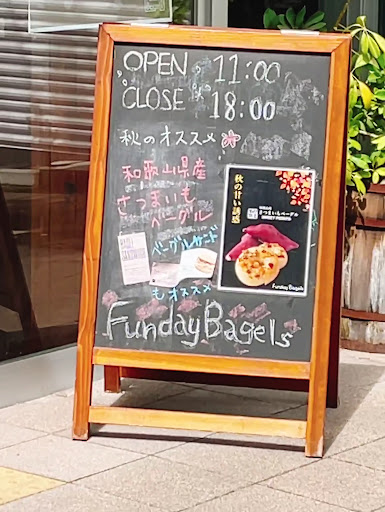 OPEN 11:00
CLOSE 18:00
秋のオススメ
和歌山県産
さつまいも
ベーグル
ベーグルサンド
もオススメ
Funday Bagels
秋の甘い誘惑
さつまいもベーグル
Funday Bagels